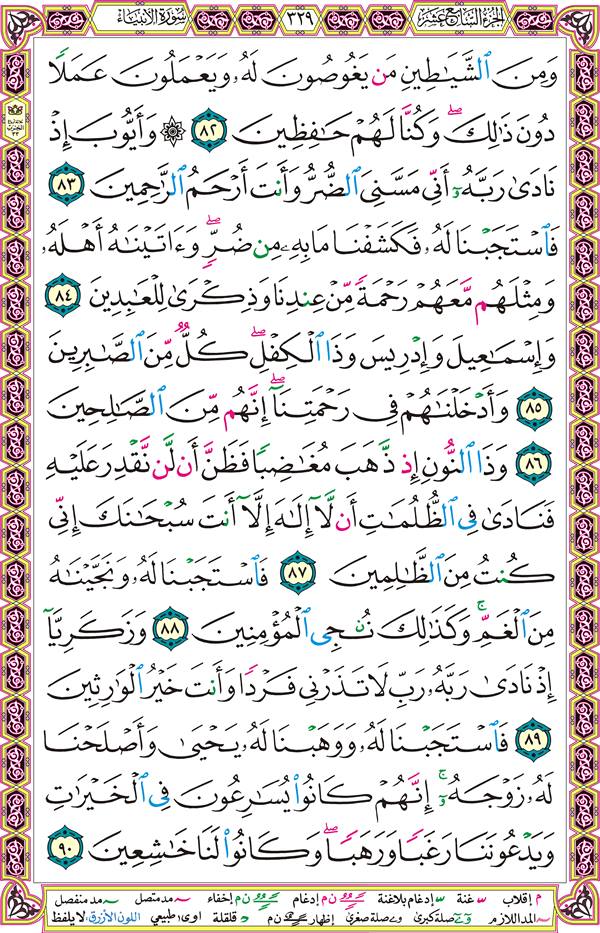 الجزء السابع عشر ٣٢٩ سورة الأنبياء
وَمِنَ ٱلشَّيَٰطِينِ مَن يَغُوصُونَ لَهُۥ وَيَعْمَلُونَ عَمَلًا
دُونَ ذَٰلِكَۖ وَكُنَّا لَهُمْ حَٰفِظِينَ ٨٢ ۞ وَأَيُّوبَ إِذْ
نَادَىٰ رَبَّهُۥٓ أَنِّي مَسَّنِيَ ٱلضُّرُّ وَأَنتَ أَرْحَمُ ٱلرَّٰحِمِينَ ٨٣
فَٱسْتَجَبْنَا لَهُۥ فَكَشَفْنَا مَا بِهِۦ مِن ضُرٍّۖ وَءَاتَيْنَٰهُ أَهْلَهُۥ
وَمِثْلَهُم مَّعَهُمْ رَحْمَةً مِّنْ عِندِنَا وَذِكْرَىٰ لِلْعَٰبِدِينَ ٨٤
وَإِسْمَٰعِيلَ وَإِدْرِيسَ وَذَا ٱلْكِفْلِۖ كُلٌّ مِّنَ ٱلصَّٰبِرِينَ
٨٥ وَأَدْخَلْنَٰهُمْ فِي رَحْمَتِنَآۖ إِنَّهُم مِّنَ ٱلصَّٰلِحِينَ
٨٦ وَذَا ٱلنُّونِ إِذ ذَّهَبَ مُغَٰضِبًا فَظَنَّ أَن لَّن نَّقْدِرَ عَلَيْهِ
فَنَادَىٰ فِي ٱلظُّلُمَٰتِ أَن لَّآ إِلَٰهَ إِلَّآ أَنتَ سُبْحَٰنَكَ إِنِّي
كُنتُ مِنَ ٱلظَّٰلِمِينَ ٨٧ فَٱسْتَجَبْنَا لَهُۥ وَنَجَّيْنَٰهُ
مِنَ ٱلْغَمِّۚ وَكَذَٰلِكَ نُۨجِي ٱلْمُؤْمِنِينَ ٨٨ وَزَكَرِيَّآ
إِذْ نَادَىٰ رَبَّهُۥ رَبِّ لَا تَذَرْنِي فَرْدًا وَأَنتَ خَيْرُ ٱلْوَٰرِثِينَ
٨٩ فَٱسْتَجَبْنَا لَهُۥ وَوَهَبْنَا لَهُۥ يَحْيَىٰ وَأَصْلَحْنَا
لَهُۥ زَوْجَهُۥٓۚ إِنَّهُمْ كَانُوا۟ يُسَٰرِعُونَ فِي ٱلْخَيْرَٰتِ
وَيَدْعُونَنَا رَغَبًا وَرَهَبًاۖ وَكَانُوا۟ لَنَا خَٰشِعِينَ ٩٠
م إقلاب غنة إدغام بلاغنة ن م إدغام إخفاء مد متصل مد منفصل
المد اللازم صلة كبرى صلة صغرى إظهار ن م قلقلة اوى طبيعي اللون الأزرق: لا يلفظ